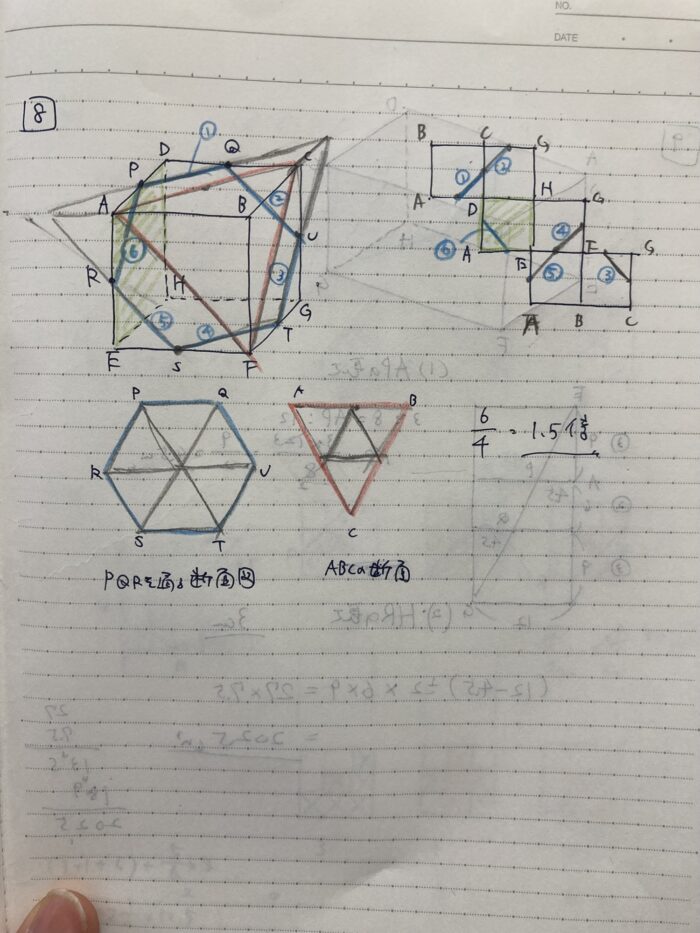 NO.
DATE
8
D ① Q C
P
A B ② U
R ⑥ H ③ G
⑤ ④ T
E S F
B C G
① ②
A D H G
⑥ ④
A E F G
⑤ ③
A B C
P Q
R U
S T
PQRを通る断面図
A B
C
ABCの断面
6/4 = 1.5倍